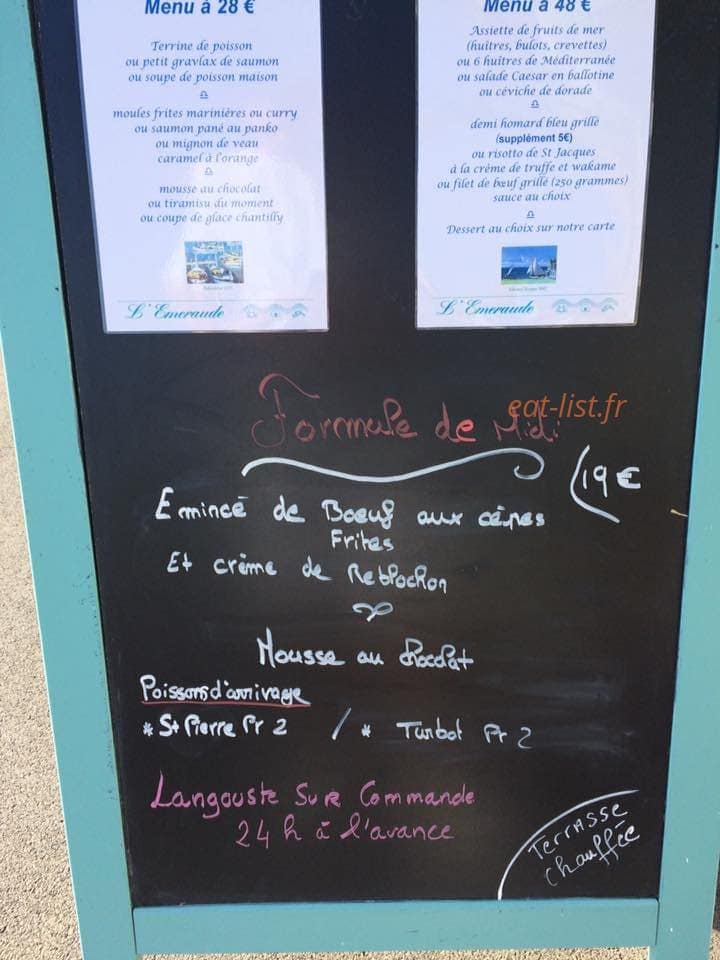 Menu à 28 €
Terrine de poisson
ou petit gravlax de saumon
ou soupe de poisson maison
moules frites marinières ou curry
ou saumon pané au panko
ou mignon de veau
caramel à l'orange
mousse au chocolat
ou tiramisu du moment
ou coupe de glace chantilly
L'Emeraude
Menu à 48 €
Assiette de fruits de mer
(huîtres, bulots, crevettes)
ou 6 huîtres de Méditerranée
ou salade Caesar en ballotine
ou céviche de dorade
demi homard bleu grillé
(supplément 5€)
ou risotto de St Jacques
à la crème de truffe et wakame
ou filet de bœuf grillé (250 grammes)
sauce au choix
Dessert au choix sur notre carte
L'Emeraude
eat-list.fr
Formule de Midi
19 €
Emincé de Bœuf aux cèpes
Frites
Et crème de Reblochon
Mousse au chocolat
Poissons d'arrivage
* St Pierre Pr 2 / * Turbot Pr 2
Langouste Sur Commande
24 h à l'avance
Terrasse
chauffée